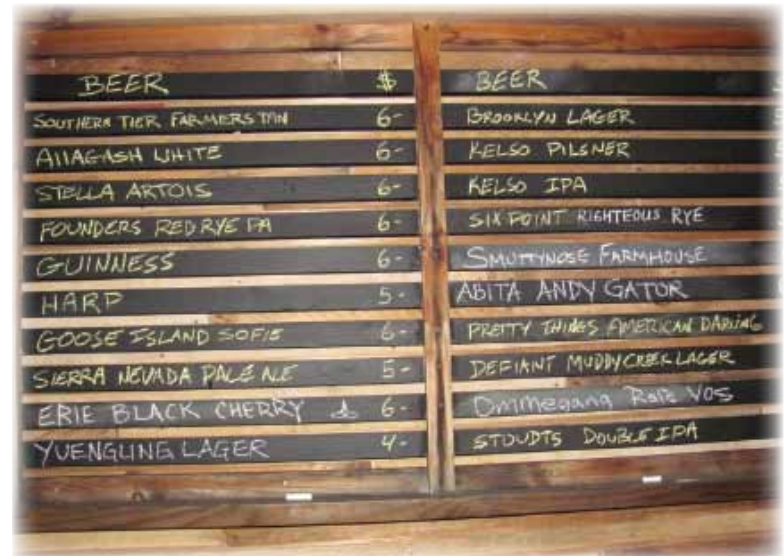 BEER $
SOUTHERN TIER FARMERS TAN 6-
AllAGASH WHITE 6-
STELLA ARTOIS 6-
FOUNDERS RED RYE PA 6-
GUINNESS 6-
HARP 5-
GOOSE ISLAND SOFIE 6-
SIERRA NEVADA PALE ALE 5-
ERIE BLACK CHERRY 6-
YUENGLING LAGER 4-
BEER
BROOKLYN LAGER
KELSO PILSNER
KELSO IPA
SIXPOINT RIGHTEOUS RYE
SMUTTYNOSE FARMHOUSE
ABITA ANDY GATOR
PRETTY THINGS AMERICAN DARLING
DEFIANT MUDDY CREEK LAGER
Ommegang Rare VOS
STOUDTS DOUBLE IPA